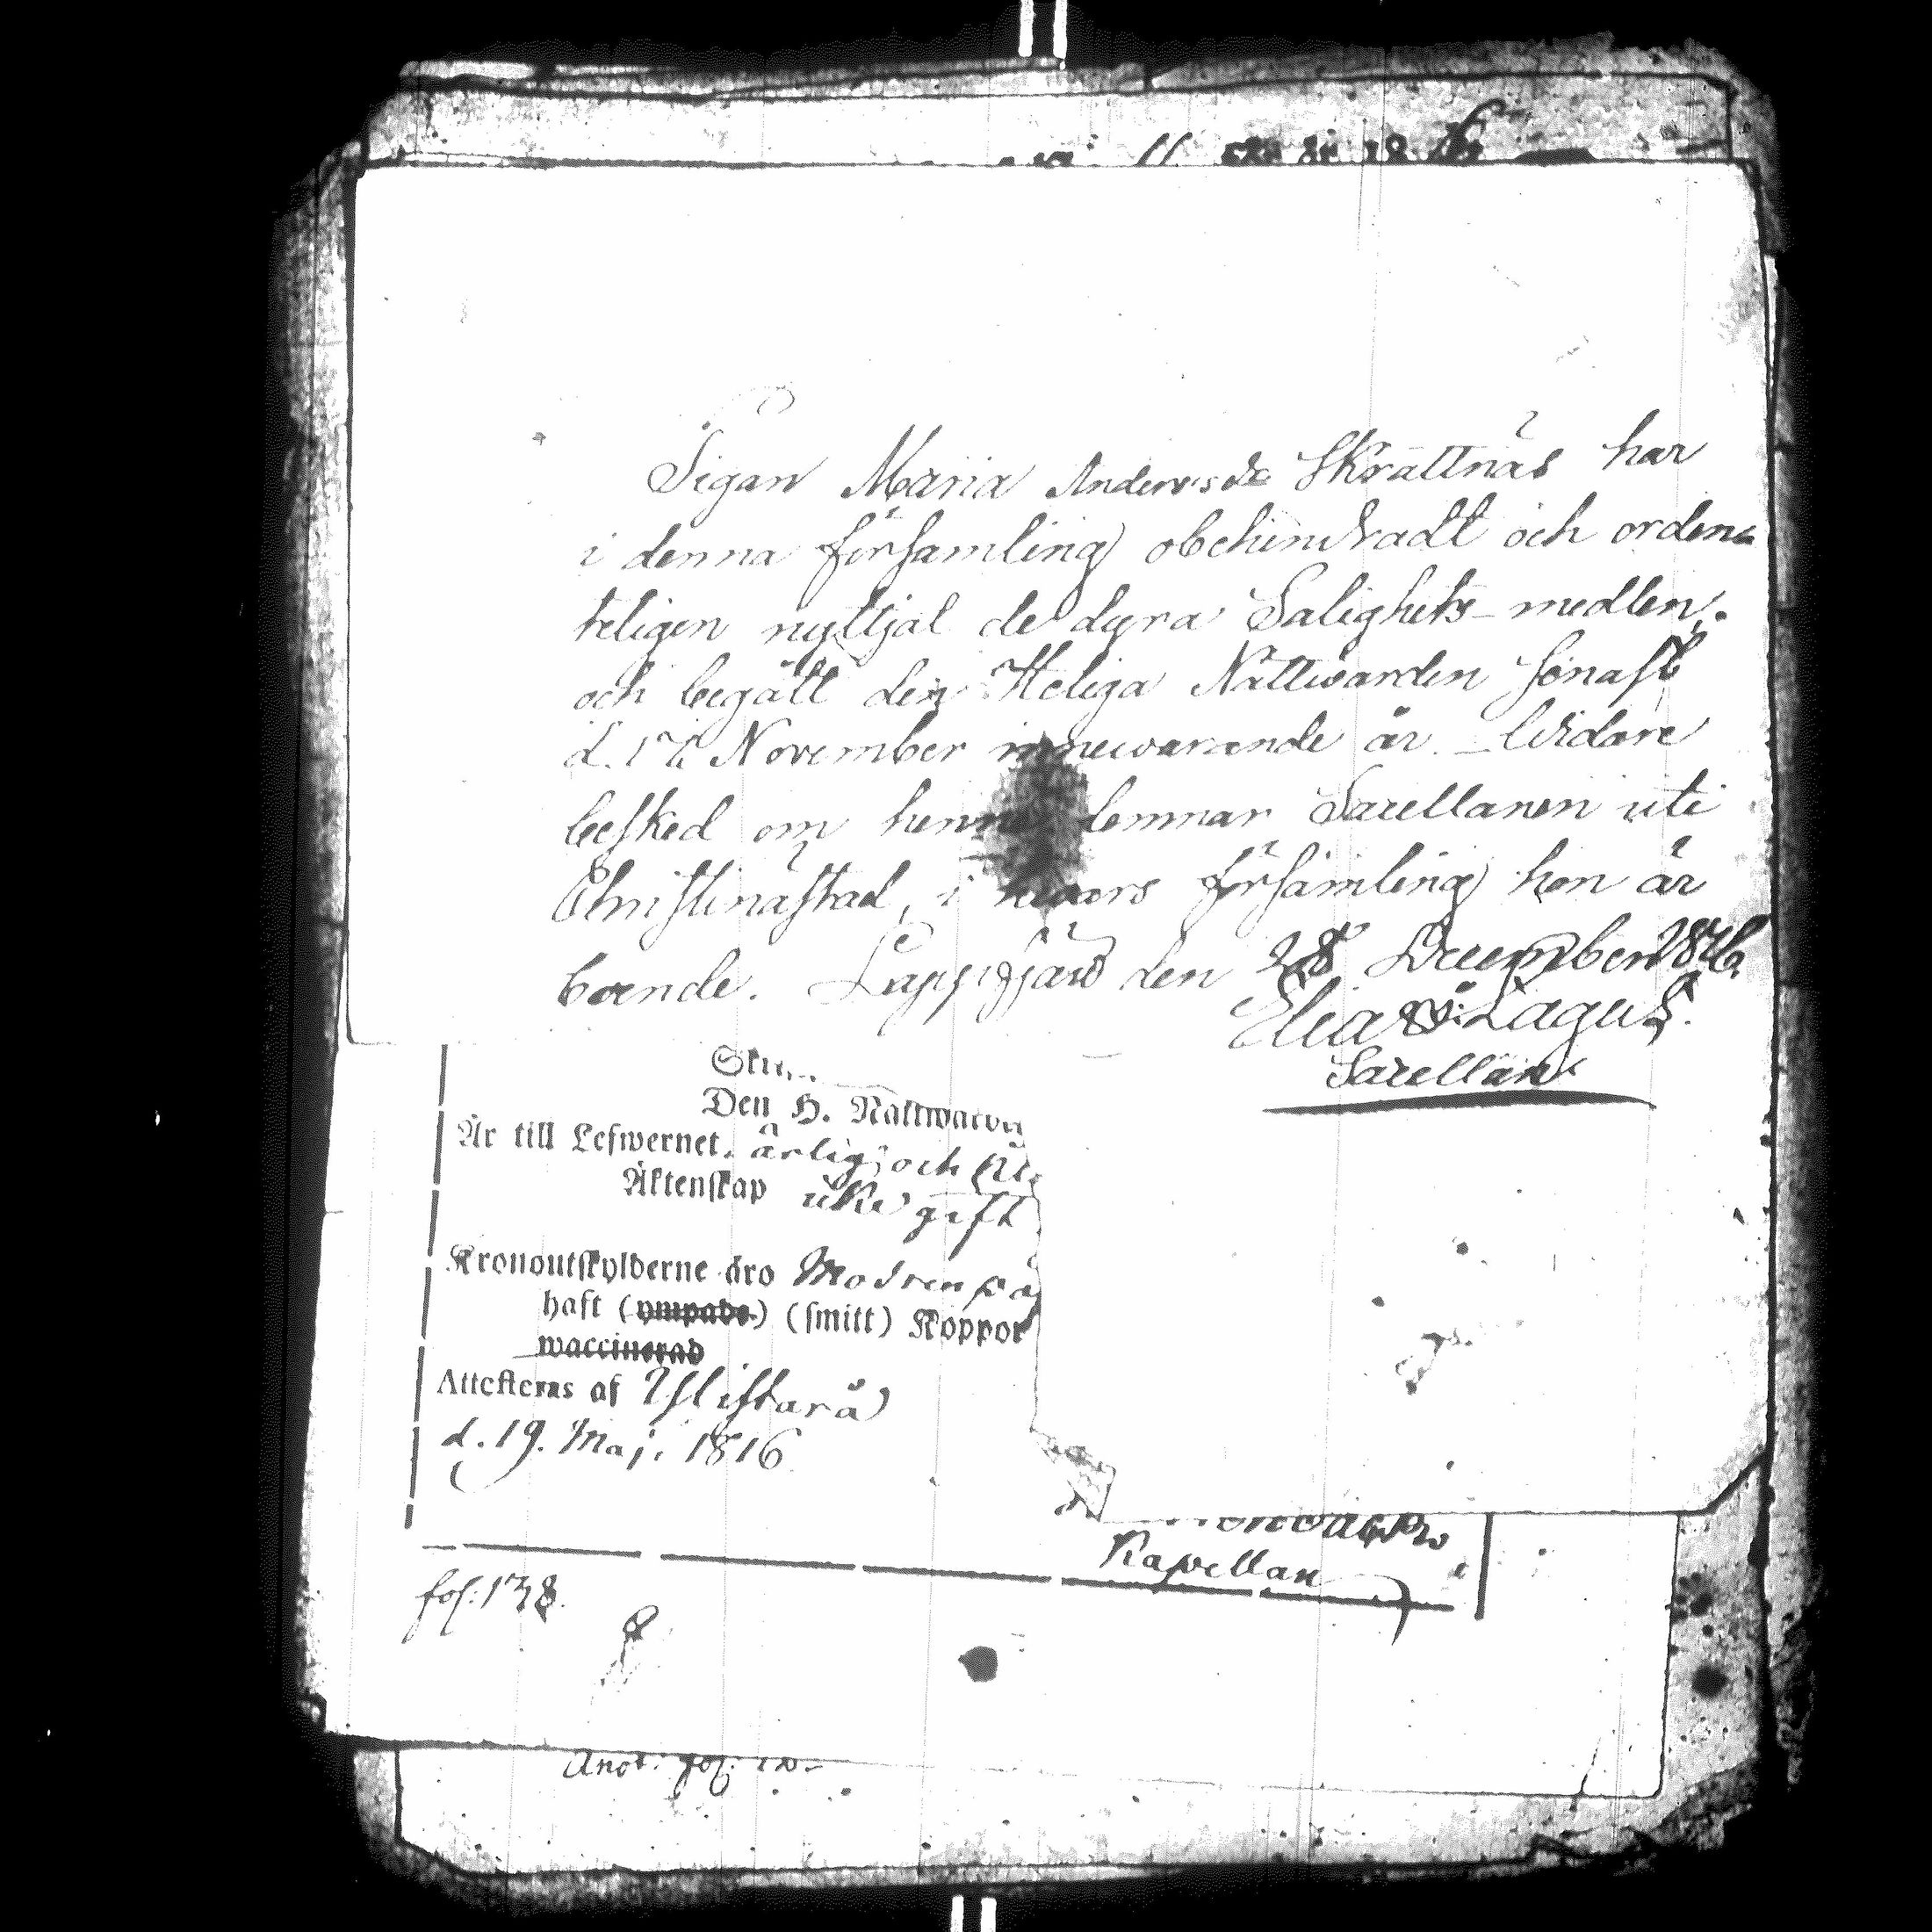 Pigan Maria Andersdr Skrattnäs har
i denna församling obehindradt och ordent
teligen nyttjat de dyra Salighets-medlen,
och begått den Heliga Nattwarden senast
d. 17 November innewarande år. Widare
besked om henne lemnar Sacellanen uti
Christinæstad, i hwars församling hon är
boende. Lappfjärd den 28 December 1816.
Elias Lagus.
Sacellan
Den H. Nattward
Är till Lefwernet ärlig och
Äktenskap icke gift
Kronoutskylderne äro Modren
haft (ympade) (smitt) Koppor
waccinerad
Attesteras af
d. 19. Maj. 1816
Kapellan
fol. 138.
Anot. fol.